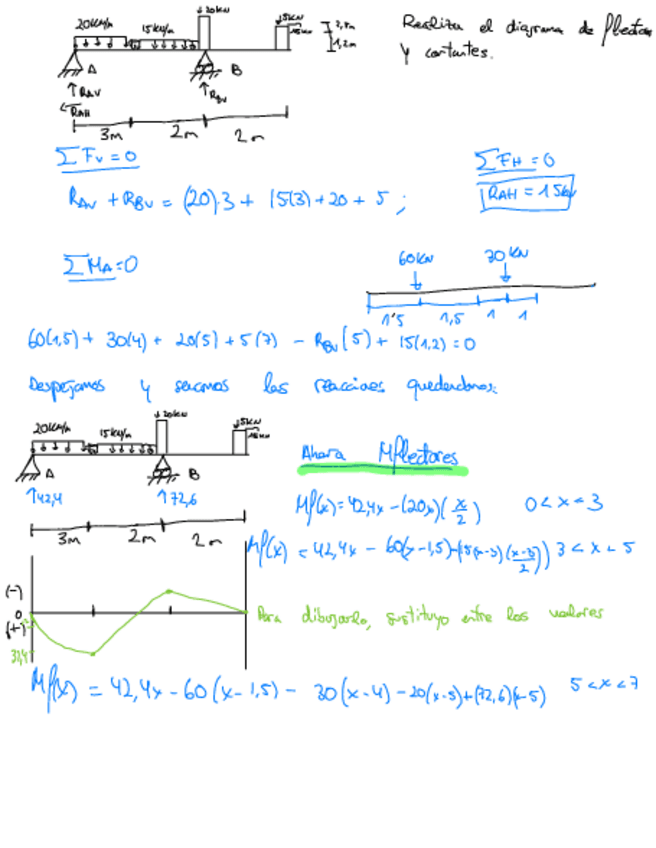 20KN/m 15KN/m ↓20KN ↓5KN 15KN 1,2m
Realiza el diagrama de flectores
y cortantes.
A B
↑RAV ↑RBV
RAH
3m 2m 2m
ΣFV=0
ΣFH=0
RAV + RBV = (20)·3 + 15(3)+20+5 ;
RAH = 15KN
ΣMA=0
60KN 30KN
1'5 1,5 1 1
60(1,5) + 30(4) + 20(5) + 5(7) - RBV(5) + 15(1,2) = 0
Despejamos y sacamos las reacciones quedandonos:
20KN/m 15KN/m ↓20KN ↓5KN 15KN
A B
↑42,4 ↑72,6
3m 2m 2m
Ahora Mflectores
Mf(x)=42,4x-(20x)(x/2) 0<x<3
Mf(x) = 42,4x - 60(x-1,5)-(15(x-3)(x-3/2)) 3<x<5
(-)
0
(+)
37,4
Para dibujarlo, sustituyo entre los valores
Mf(x) = 42,4x-60(x-1,5)- 30(x-4)-20(x-5)+(72,6)(x-5) 5<x<7